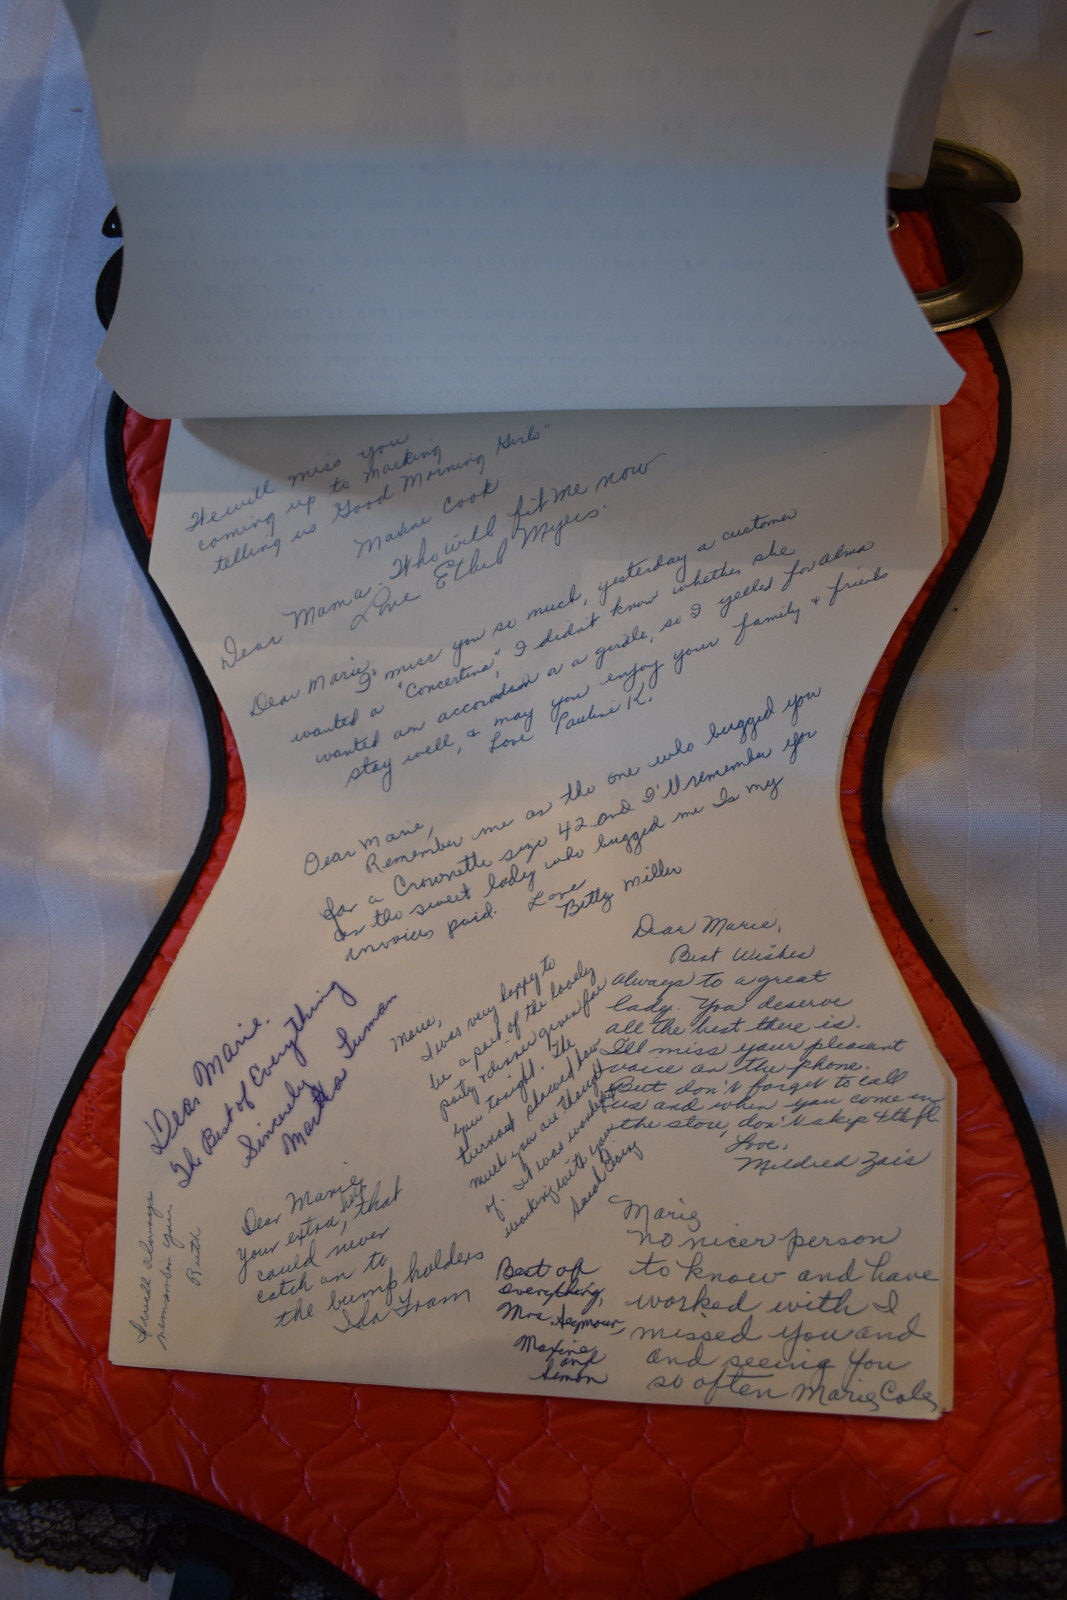 We will miss you
coming up to Marking
telling us "Good Morning Girls"
Maxine Cook
Dear Mama. Who will fit me now
Love Ethel Myers.
Dear Marie,
I miss you so much, yesterday a customer
wanted a "Concertina", I didn't know whether she
wanted an accordian or a girdle, so I yelled for Alma
stay well, & may you enjoy your family & friends
Love Pauline K.
Dear Marie,
Remember me as the one who bugged you
for a Crownette size 42 and I'll remember you
as the sweet lady who bugged me Is my
invoices paid.
Love
Betty Miller
Dear Marie.
The Best of Everything
Sincerely
Martha
Marie,
I was very happy to
be a part of the lovely
party & dinner given for
you tonight. The
turnout showed how
much you are thought
of. It was wonderful
working with you
Dear Marie,
Best Wishes
always to a great
lady. You deserve
all the best there is.
I'll miss your pleasant
voice on the phone.
But don't forget to call
us and when you come in
the store, don't skip 4th fl.
Love,
Mildred Zais
I will always
remember you
Ruth
Dear Marie
your extra hat, that
could never
catch on to
the bump holders
Ida Fram
Best of
everything,
Mrs. Seymour,
Maxine
and
Simon
Marie
No nicer person
to know and have
worked with I
missed you and
and seeing you
so often Marie Cole